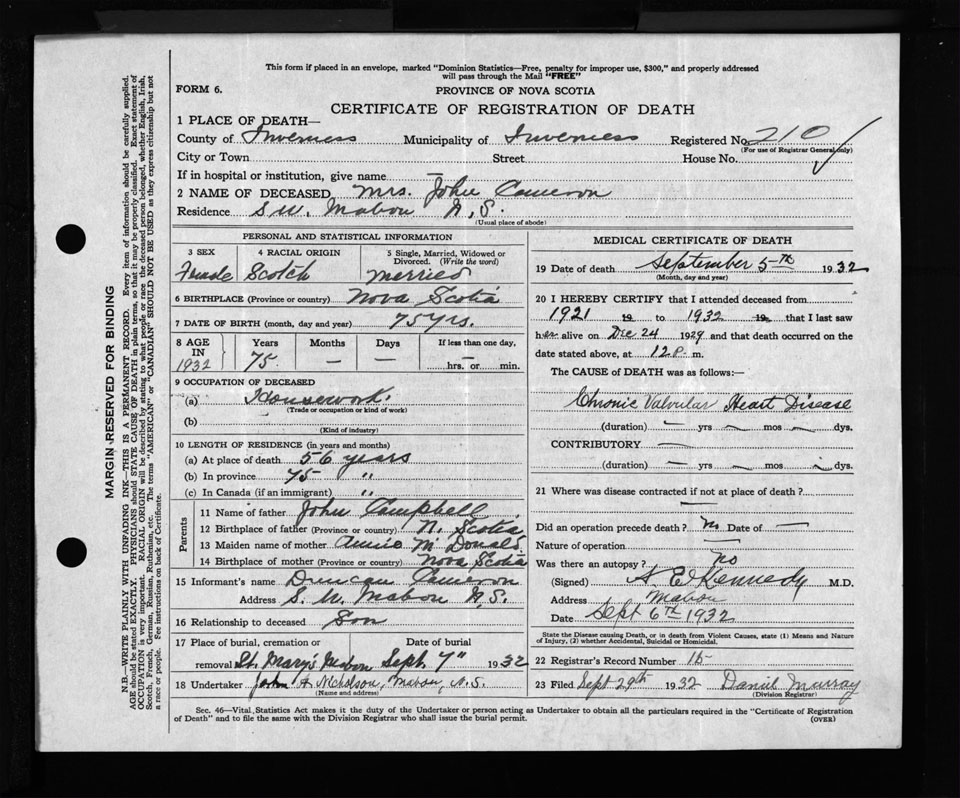 This form if placed in an envelope, marked "Dominion Statistics—Free, penalty for improper use, $300," and properly addressed
will pass through the Mail "FREE"
FORM 6.
PROVINCE OF NOVA SCOTIA
CERTIFICATE OF REGISTRATION OF DEATH
1 PLACE OF DEATH—
County of Inverness Municipality of Inverness Registered No. 210
(For use of Registrar General only)
City or Town Street House No.
If in hospital or institution, give name —
2 NAME OF DECEASED Mrs. John Cameron
Residence S.W. Mabou N.S.
(Usual place of abode)
PERSONAL AND STATISTICAL INFORMATION
3 SEX 4 RACIAL ORIGIN 5 Single, Married, Widowed or
Divorced. (Write the word)
Female Scotch Married
6 BIRTHPLACE (Province or country) Nova Scotia
7 DATE OF BIRTH (month, day and year) 75 yrs.
8 AGE IN 1932 Years Months Days If less than one day,
75 — — — hrs. or min.
9 OCCUPATION OF DECEASED
(a) Housework.
(Trade or occupation or kind of work)
(b)
(Kind of industry)
10 LENGTH OF RESIDENCE (in years and months)
(a) At place of death 56 years
(b) In province 75 "
(c) In Canada (if an immigrant) "
Parents
11 Name of father John Campbell
12 Birthplace of father (Province or country) N. Scotia
13 Maiden name of mother Annie McDonald
14 Birthplace of mother (Province or country) Nova Scotia
15 Informant's name Duncan Cameron
Address S.W. Mabou N.S.
16 Relationship to deceased Son
17 Place of burial, cremation or Date of burial
removal St. Mary's Mabou Sept. 7" 1932
18 Undertaker John A. Nicholson, Mabou, N.S.
(Name and address)
MEDICAL CERTIFICATE OF DEATH
19 Date of death September 5th 1932
(Month, day and year)
20 I HEREBY CERTIFY that I attended deceased from
1921 19 to 1932 19 that I last saw
her alive on Dec 24 1929 and that death occurred on the
date stated above, at 12 P. m.
The CAUSE of DEATH was as follows:—
Chronic Valvular Heart Disease
(duration) — yrs — mos — dys.
CONTRIBUTORY —
(duration) — yrs — mos — dys.
21 Where was disease contracted if not at place of death?
—
Did an operation precede death? No Date of —
Nature of operation —
Was there an autopsy? No
(Signed) A. E. Kennedy M.D.
Address Mabou
Date Sept 6th 1932
State the Disease causing Death, or in death from Violent Causes, state (1) Means and Nature
of Injury, (2) whether Accidental, Suicidal or Homicidal.
22 Registrar's Record Number 15
23 Filed Sept 29th 1932 Daniel Murray
(Division Registrar)
Sec. 46—Vital Statistics Act makes it the duty of the Undertaker or person acting as Undertaker to obtain all the particulars required in the "Certificate of Registration
of Death" and to file the same with the Division Registrar who shall issue the burial permit.
(OVER)
MARGIN RESERVED FOR BINDING
N.B.—WRITE PLAINLY WITH UNFADING INK—THIS IS A PERMANENT RECORD. Every item of information should be carefully supplied.
AGE should be stated EXACTLY. PHYSICIANS should STATE CAUSE OF DEATH in plain terms, so that it may be properly classified. Exact statement of
OCCUPATION is very important. RACIAL ORIGIN will be described by stating to what people or race the deceased person belonged, whether English, Irish,
Scotch, French, German, Russian, Ruthenian, etc. The terms "AMERICAN" or "CANADIAN" SHOULD NOT BE USED as they express citizenship but not
a race or people. See instructions on back of Certificate.